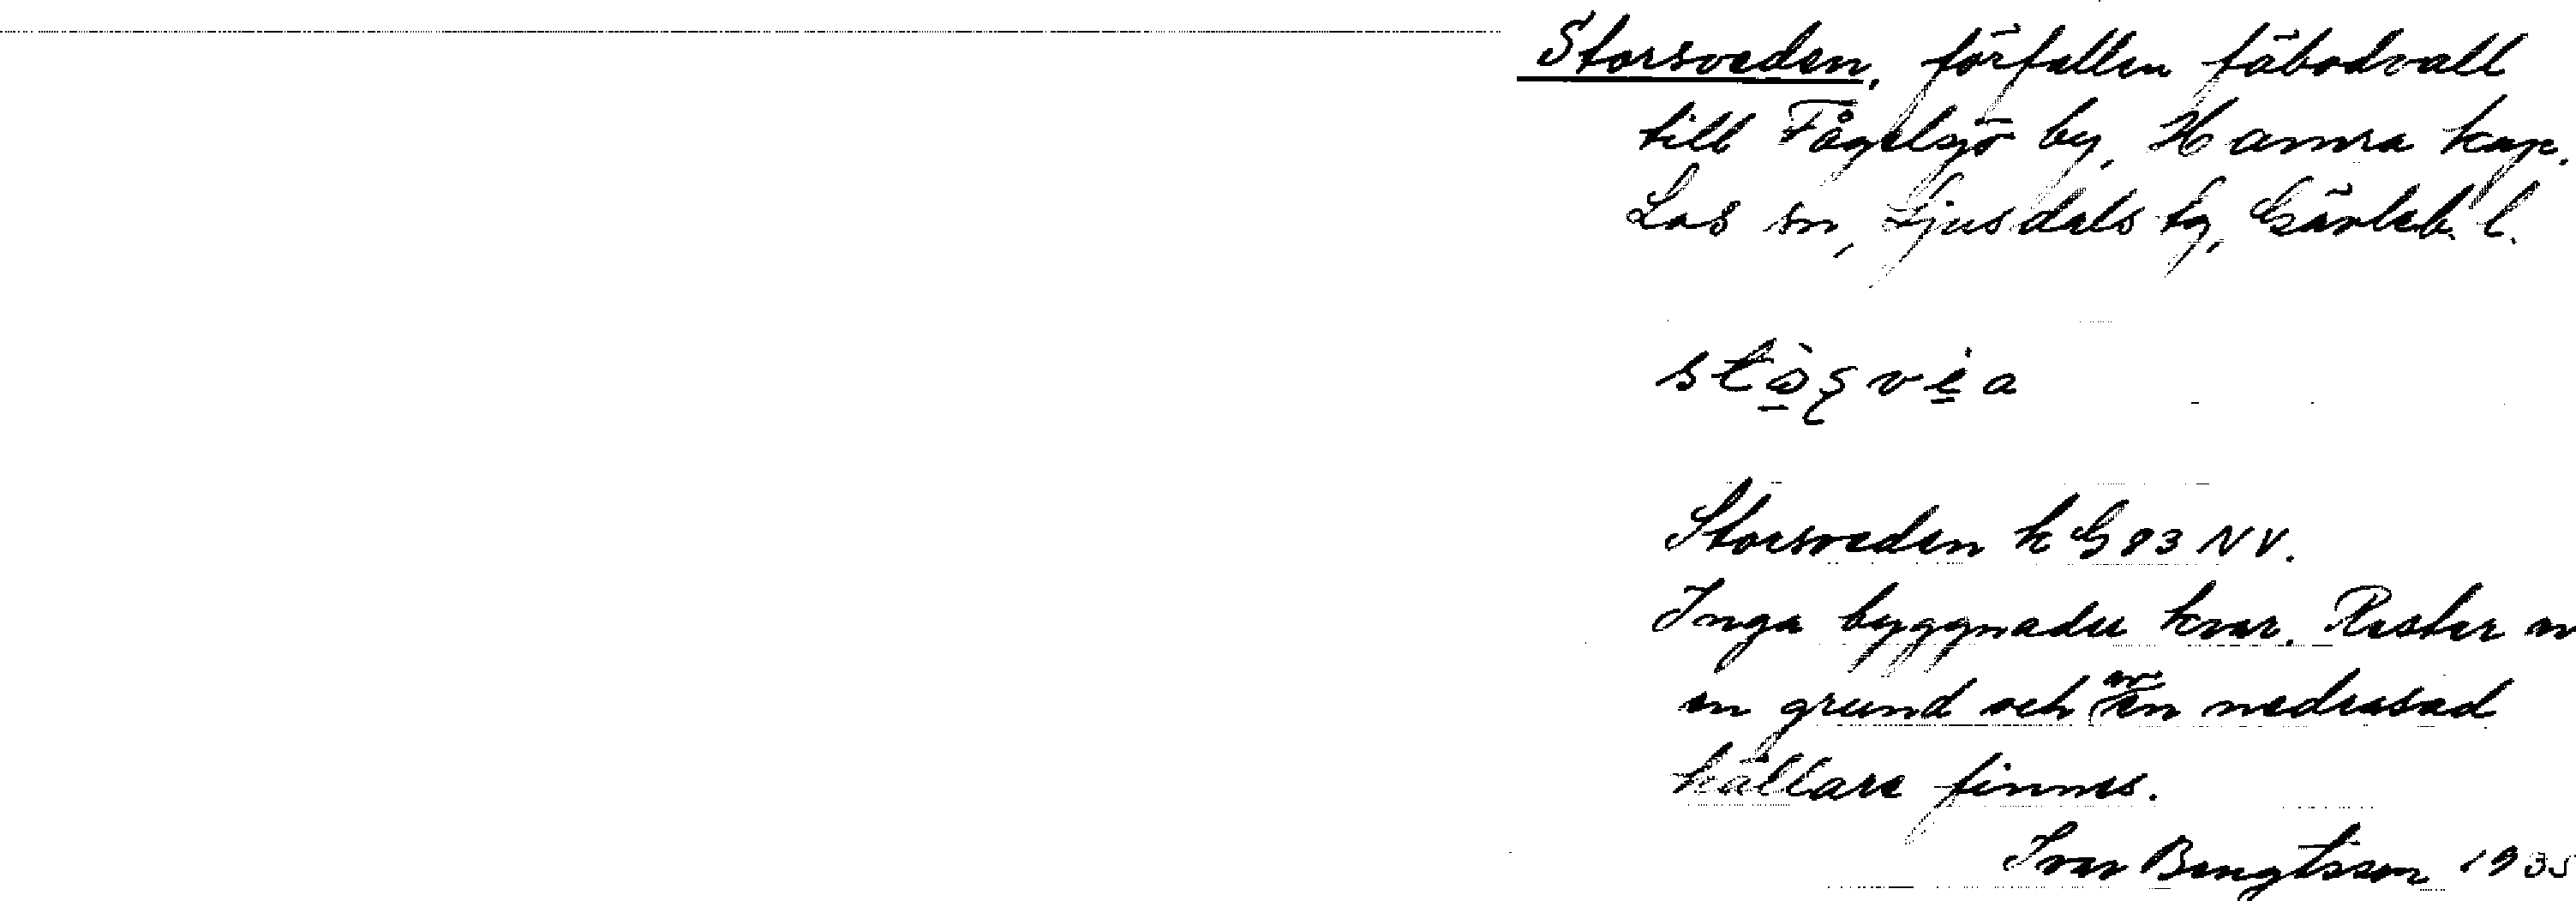 Storsveden, förfallen fäbodvall
till Fågelsjö by, Hamra kap.
Los sn, Ljusdals tg, Gävleb. l.
Storsveden k G 83 NV.
Inga byggnader kvar. Rester av
en grund och av en nedrasad
källare finnes.
Ivar Bengtsson 1935